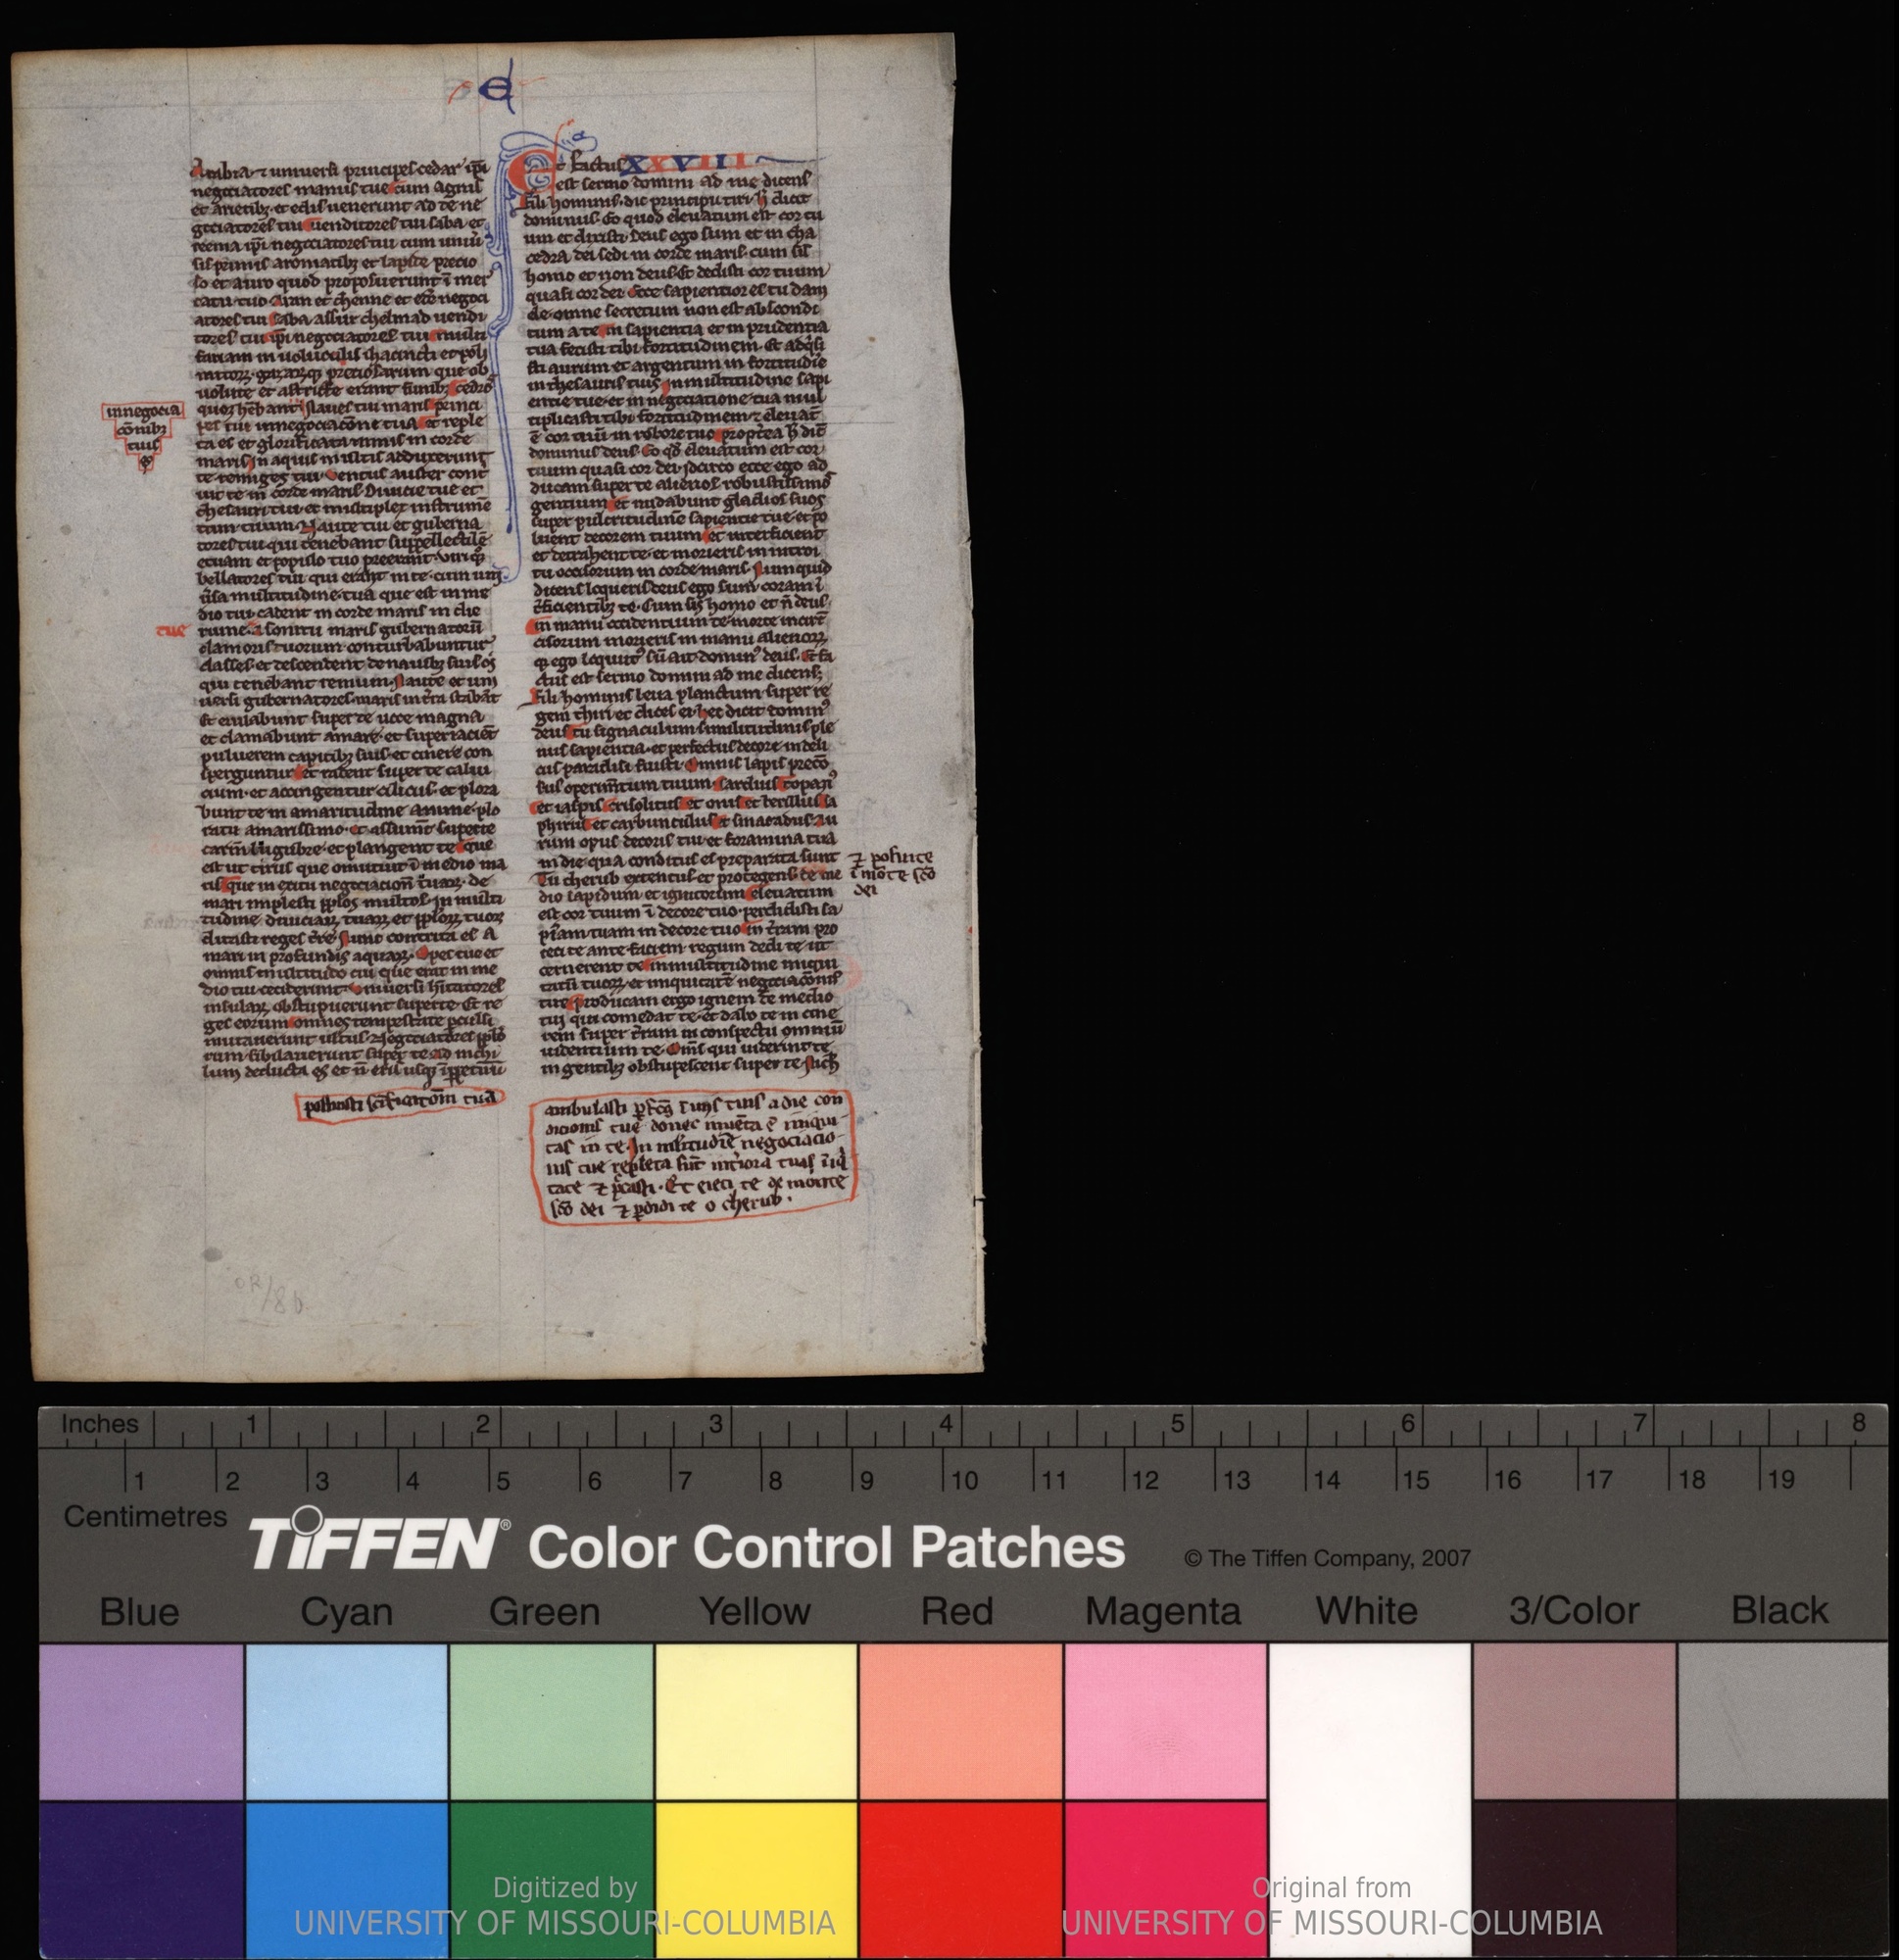 e
Arabia ⁊ uniuersi principes cedar ip̄i
negociatores manus tue cum agnis
et arietibꝫ et edis uenerunt ad te ne
gociatores tui uenditores tui saba et
reema ip̄i negociatores tui cum uniū
sis primis aromatibꝫ et lapide precio
so et auro quod proposuerunt ī mer
catu tuo Aran et chenne et edē negoci
atores tui saba assur chelmad uendi
tores tui ip̄i negociatores tui multi
fariam in uolucris iacincti et poli
mitoꝝ gazaꝝqꝫ preciosarum que ob
uolute et astricte erant funibꝫ cedro
quoꝫ hēbant naues tui maris princi
pes tui in negociacōne tua et reple
ta es et glorificata nimis in corde
maris in aquis multis adduxerunt
te remiges tui uentus auster cont
uit te in corde maris Diuicie tue et
thesauri tui et multiplex instrumē
tum tuum Naute tui et guberna
tores tui qui tenebant suppellectilē
tuam et populo tuo preerant uiri qꝫ
bellatores tui qui erant in te cum uni
ūsa multitudine tua que est in me
dio tui cadent in corde maris in die
ruine A sonitu maris gubernatorū
clamoris tuorum conturbabuntur
classes et descendent de nauibꝫ suis oēs
qui tenebant remum Naute et uni
uersi gubernatores maris in t̄ra stabāt
Et eiulabunt super te uoce magna
et clamabunt amare et superiacient
puluerem capitibꝫ suis et cinere con
sperguntur et radent super te calui
cium et accingentur cilicus et plora
bunt te in amaritudine anime plo
ratu amarissimo et assumēt super te
carm̄ lugubre et plangent te que
est ut tirus que omutuit ī medio ma
ris que in exitu negociacion̄ tuaꝝ de
mari implesti pp̄los multos in multi
tudine diuiciaꝝ tuaꝝ et pp̄loꝝ tuoꝝ
ditasti reges t̄re Nunc contrita es A
mari in profundis aquaꝝ Opes tue et
omnis multitudo tui que erat in me
dio tui ceciderunt Uniuersi h̄itatores
insulaꝝ obstupuerunt super te Et re
ges eorum omnes tempestate pculsi
mutauerunt uultus Negociatores pplō
rum sibilauerunt super te ad nichi
lum deducta es et n̄ eris usqꝫ ī ppetuū
possuisti scificatōm tuā
in negocia
cōnibꝫ
tuis
tue
Et factus XXVIII
est sermo domini ad me dicens
Fili hominis dic principi tiri h̄ dicit
dominus Eo quod eleuatum est cor tu
um et dixisti deus ego sum et in cha
tedra dei sedi in corde maris cum sis
homo et non deus Et dedisti cor tuum
quasi cor dei Ecce sapientior es tu dani
ele omne secretum non est abscondi
tum a te in sapientia et in prudentia
tua fecisti tibi fortitudinem Et adqͥsi
sti aurum et argentum in fortitudīe
in thesauris tuis In multitudine sapi
entie tue et in negociatione tua mul
tiplicasti tibi fortitudinem ⁊ eleuat̄
ē cor tuū in robore tuo propt̄ea h̄ dic̄
dominus deus Eo qd̄ eleuatum est cor
tuum quasi cor dei Idcirco ecce ego ad
ducam super te alienos robustissimos
gentium et nudabunt gladios suos
super pulcritudinē sapientie tue et po
luent decorem tuum et interficient
et detrahent te et morieris in interi
tu occisorum in corde maris Nunquid
dicens loqueris deus ego sum coram ī
t̄ficientibꝫ te Cum sis homo et n̄ deus
in manu occidentium te morte incircū
cisorum morieris in manu alienoꝝ
qꝛ ego loqut̾ sū ait domin̾ deus Et fa
ctus est sermo domini ad me dicens
Fili hominis leua planctum super re
gem thiri et dices ei hec dicit domin̾
deus tu signaculum similitudinis ple
nus sapientia et perfectus decore in deli
ciis paradisi fuisti Omnis lapis preciō
sus operim̄tum tuum Sardius topazi̾
et iaspis crisolitus et onix et berillus sa
phirus et carbunculus et smaradus Au
rum opus decoris tui et foramina tua
in die qua conditus es preparata sunt
Tu cherub extentus et protegens te me
dio lapidum et ignitorum eleuatum
est cor tuum ī decore tuo perdidisti sa
pīam tuam in decore tuo in t̄ram pro
ieci te ante faciem regum dedi te ut
cernerent te in multitudine iniqui
tatū tuoꝝ et iniquitatē negociacōnis
tue producam ergo ignem de medio
tui qui comedat te et dabo te in cine
rem super t̄ram in conspectu omniū
uidentium te Om̄s qui uiderint te
in gentibꝫ obstupescent super te Nich
⁊ posui te
ī mōte scō
dei
ambulasti pfc̄s ī uiis tuis a die con
dicionis tue donec inuēta ē iniqui
tas in te In mltitudīe negociacio
nis tue repleta sūt int̄iora tua īiqͥ
tate ⁊ pc̄asti Et eieci te de monte
scō dei ⁊ pdidi te o cherub
OR/8b
Inches 1 2 3 4 5 6 7 8
1 2 3 4 5 6 7 8 9 10 11 12 13 14 15 16 17 18 19
Centimetres
TIFFEN® Color Control Patches © The Tiffen Company, 2007
Blue Cyan Green Yellow Red Magenta White 3/Color Black
Digitized by Original from
UNIVERSITY OF MISSOURI-COLUMBIA UNIVERSITY OF MISSOURI-COLUMBIA